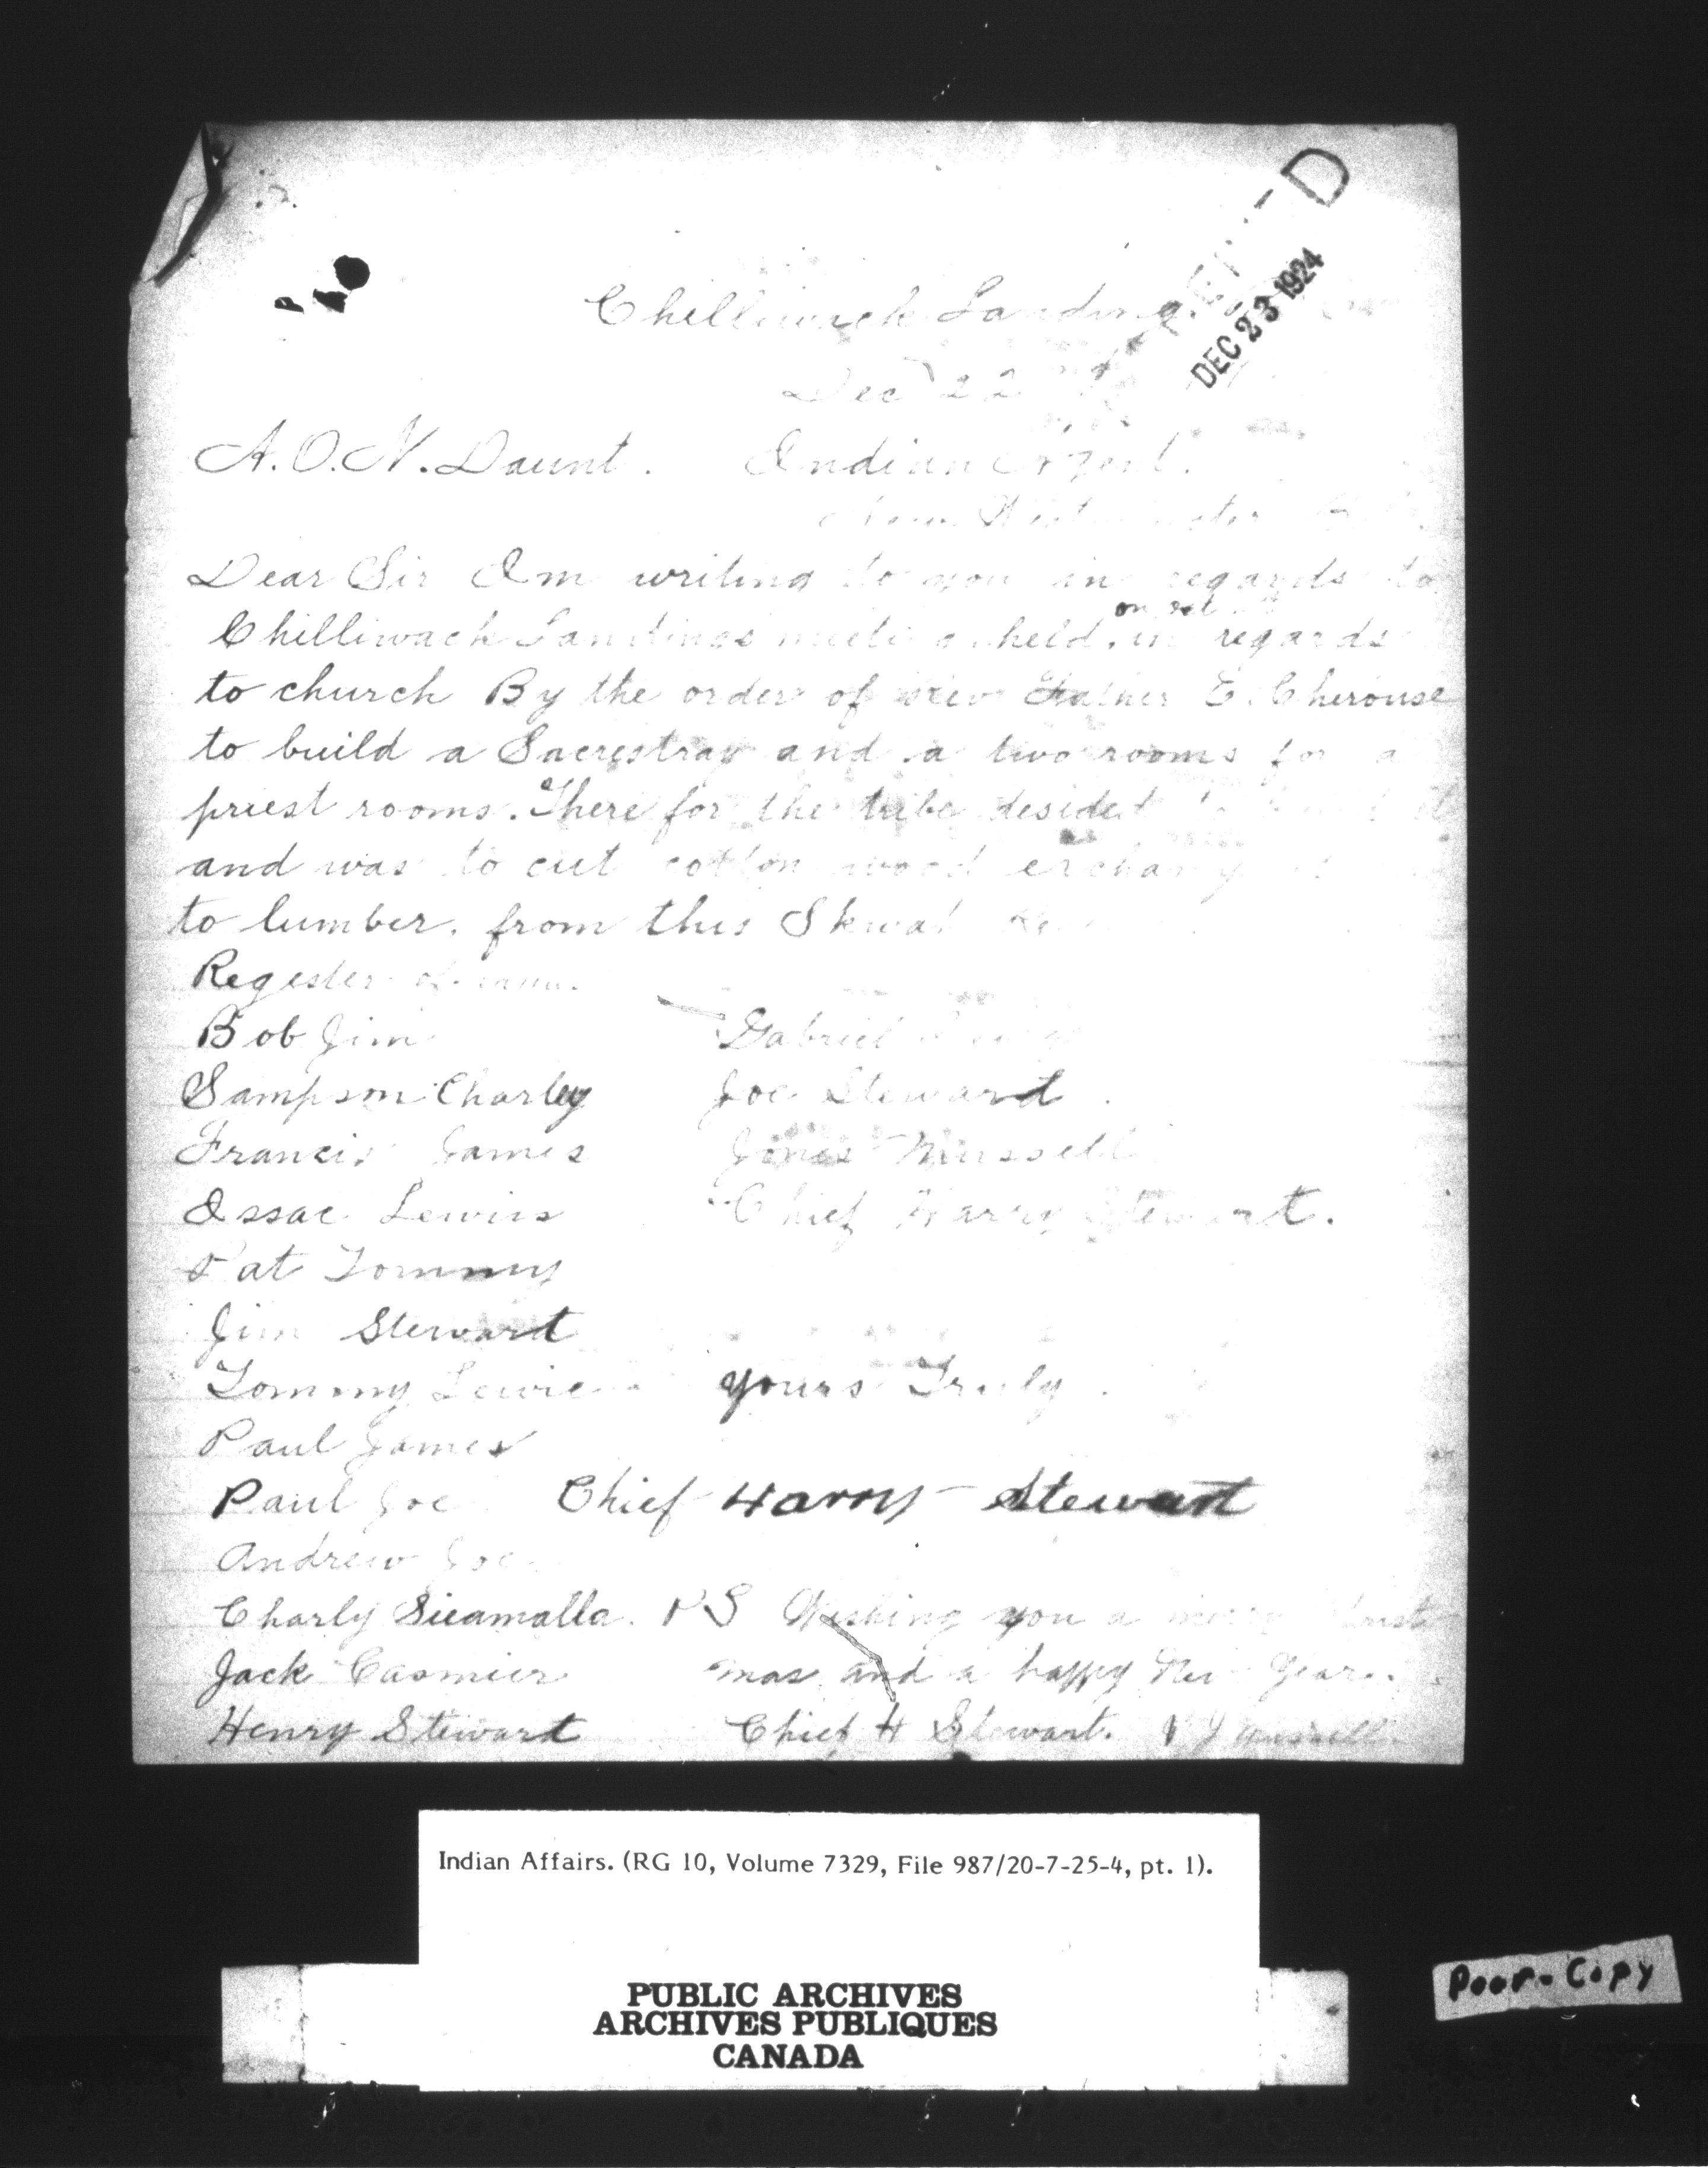 DEC 23 1924
Chilliwack Landing.
Dec 22
A. O. N. Daunt. Indian Agent.
New Westminster
Dear Sir I m writing to you in regards to
on sat
Chilliwack Landings meeting held. in regards
to church By the order of Rev Father E. Cherouse
to build a Sacrestray and a two rooms for a
priest rooms. There for the tribe desided to
and was to cut cotton wood
to lumber. from this Skwa
Regester of
Bob Jim Gabriel
Sampson Charley Joe Steward
Francis James Jones Mussell
Issac Lewis Chief Harry Stewart.
Pat Tommy
Jim Stewart
Tommy Lewis yours Truly.
Paul James
Paul Joe Chief Harry Stewart
Andrew Joe
Charly Sieamalla. P S Wishing you a
Jack Casmier mas and a happy New Year.
Henry Stewart Chief H Stewart. J Mussell
Indian Affairs. (RG 10, Volume 7329, File 987/20-7-25-4, pt. 1).
PUBLIC ARCHIVES
ARCHIVES PUBLIQUES
CANADA
Poor-Copy